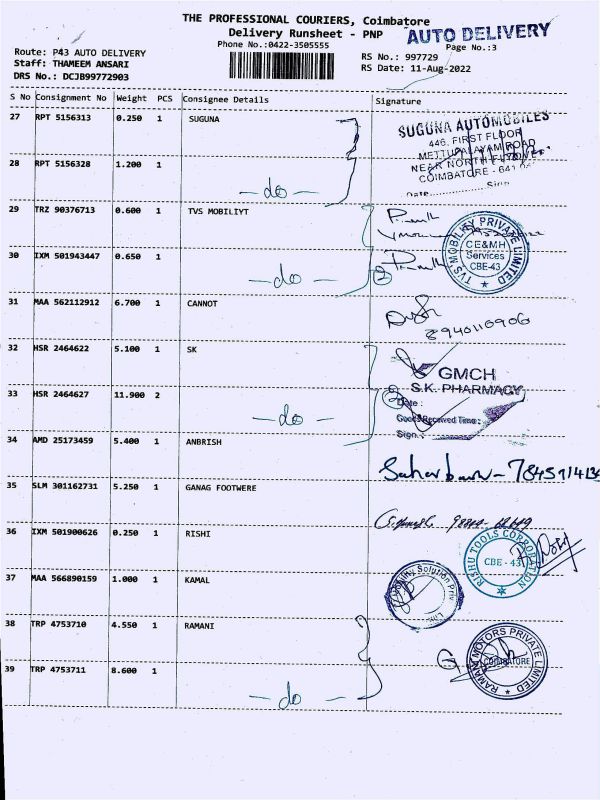 THE PROFESSIONAL COURIERS, Coimbatore
Delivery Runsheet - PNP
AUTO DELIVERY
Phone No.:0422-3505555
Page No.:3
Route: P43 AUTO DELIVERY
RS No.: 997729
Staff: THAMEEM ANSARI
RS Date: 11-Aug-2022
DRS No.: DCJB99772903
S No Consignment No Weight PCS Consignee Details Signature
27 RPT 5156313 0.250 1 SUGUNA
SUGUNA AUTOMOBILES
446, FIRST FLOOR
METTUPALAYAM ROAD
NEAR NORTH
COIMBATORE - 641
Date
Sign
28 RPT 5156328 1.200 1
- do -
29 TRZ 90376713 0.600 1 TVS MOBILIYT
TVS MOBILITY PRIVATE LIMITED
CE&MH
Services
CBE-43
30 IXM 501943447 0.650 1
- do -
2
31 MAA 562112912 6.700 1 CANNOT
8940110906
32 HSR 2464622 5.100 1 SK
GMCH
S.K. PHARMACY
Date :
Goods Received Time :
Sign :
33 HSR 2464627 11.900 2
- do -
2
34 AMD 25173459 5.400 1 ANBRISH
35 SLM 301162731 5.250 1 GANAG FOOTWERE
36 IXM 501900626 0.250 1 RISHI
RISHU TOOLS CORPORATION
CBE - 43
37 MAA 566890159 1.000 1 KAMAL
Solution
38 TRP 4753710 4.550 1 RAMANI
RAMANI MOTORS PRIVATE LIMITED
COIMBATORE
39 TRP 4753711 8.600 1
- do -